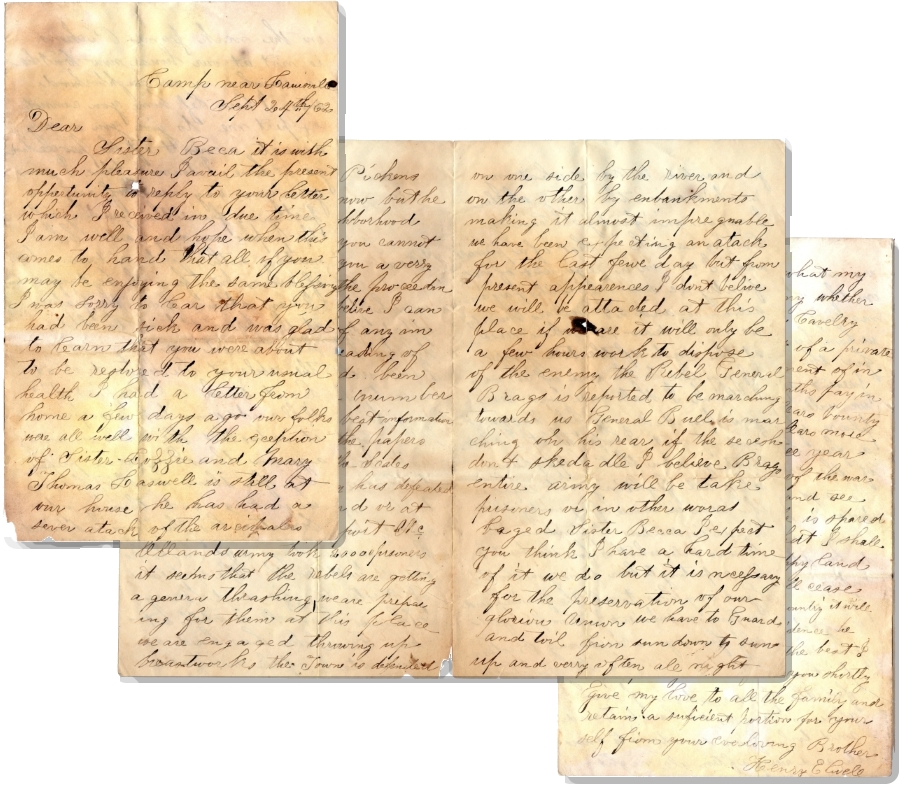 Camp near
Sept 24th / 62
Dear
Sister Beca it is with
much pleasure I avail the present
opportunity to reply to your letter
which I received in due time
I am well and hope when this
comes to hand that all if you
may be enjoying the same blessing
I was sorry to har that you
had been sick and was glad
to learn that you were about
to be restored to your usual
health I had a letter from
home a few days ago our folks
ware all well with the eception
of Sister Lizzie and Mary
Thomas is still at
our house he has had a
sever atack of the
army took prisoners
it seems that the rebels are getting
a genera thrashing we are prepar
ing for them at this place
we are engaged throwing up
breastworks the Town is defended
Pickens
now but he
hborhood
you cannot
you a verry
he procedin
I can
f any im
ading of
d been
number
best information
he papers
has defeated
d or at
on one side by the river and
on the other by enbankments
making it almost impregnable
we have been expecting an atack
for the last fewe day but from
present appearences I dont belive
we will be attacted at this
place if we are it will only be
a few hours work to dispose
of the enemy the Rebel General
Brags is reported to be marching
towards us General Buell is mar
ching on his rear if the secesh
don't skedadle I believe Brags
entire army will be take
prisoners or in other words
baged Sister Becca I expect
you think I have a hard time
of it we do but it is necessary
for the preservation of our
glorious Union we have to Guard
and toil from sundown to sun
up and verry often ale night
what my
whether
Cavelry
of a private
ment of in
ths pay in
County
more
ee year
of the war
nd see
is spared
I shall
land
cease
untry it will
he
the best of
you shortly
Give my love to all the family and
retain a suficient portion for your
self from your ever loving Brother
Henry Elwell